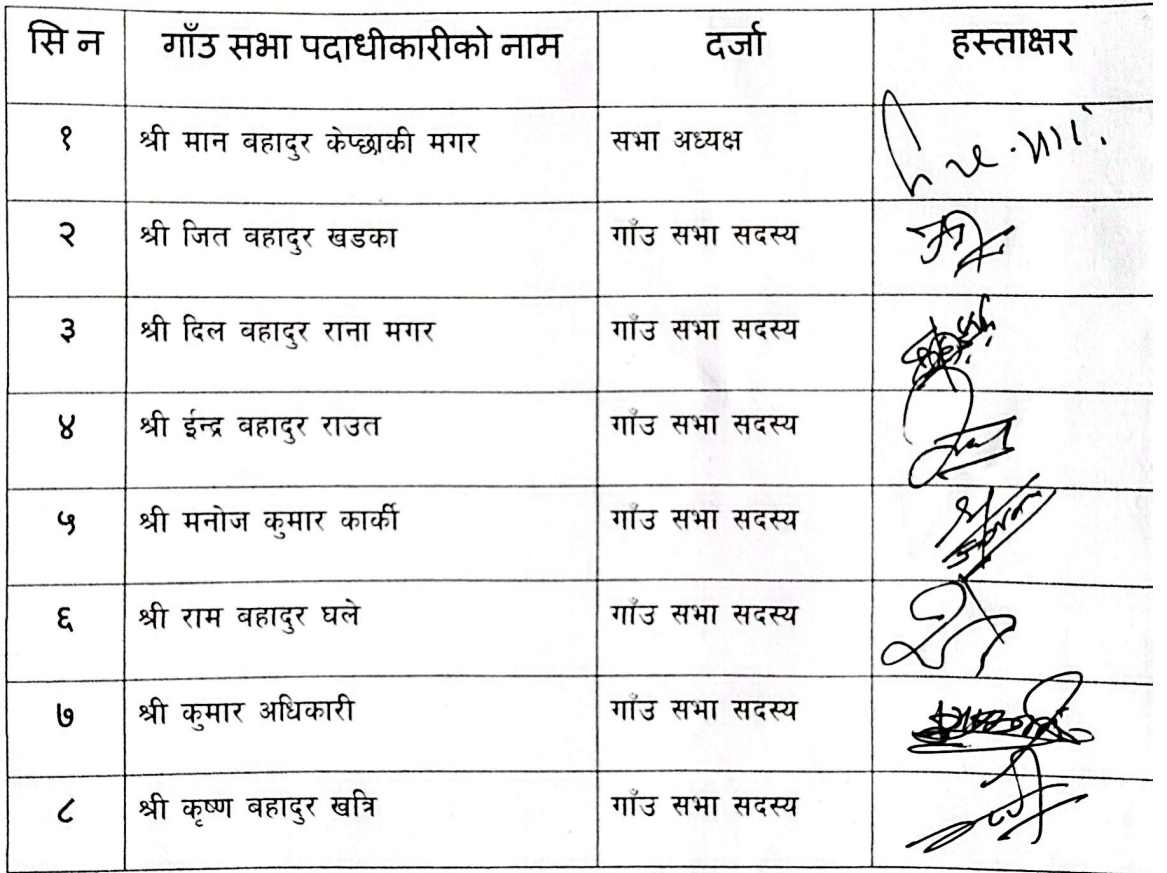 सि न गाँउ सभा पदाधीकारीको नाम दर्जा हस्ताक्षर
१ श्री मान वहादुर केप्छाकी मगर सभा अध्यक्ष
२ श्री जित वहादुर खडका गाँउ सभा सदस्य
३ श्री दिल वहादुर राना मगर गाँउ सभा सदस्य
४ श्री ईन्द्र वहादुर राउत गाँउ सभा सदस्य
५ श्री मनोज कुमार कार्की गाँउ सभा सदस्य
६ श्री राम वहादुर घले गाँउ सभा सदस्य
७ श्री कुमार अधिकारी गाँउ सभा सदस्य
८ श्री कृष्ण वहादुर खत्रि गाँउ सभा सदस्य